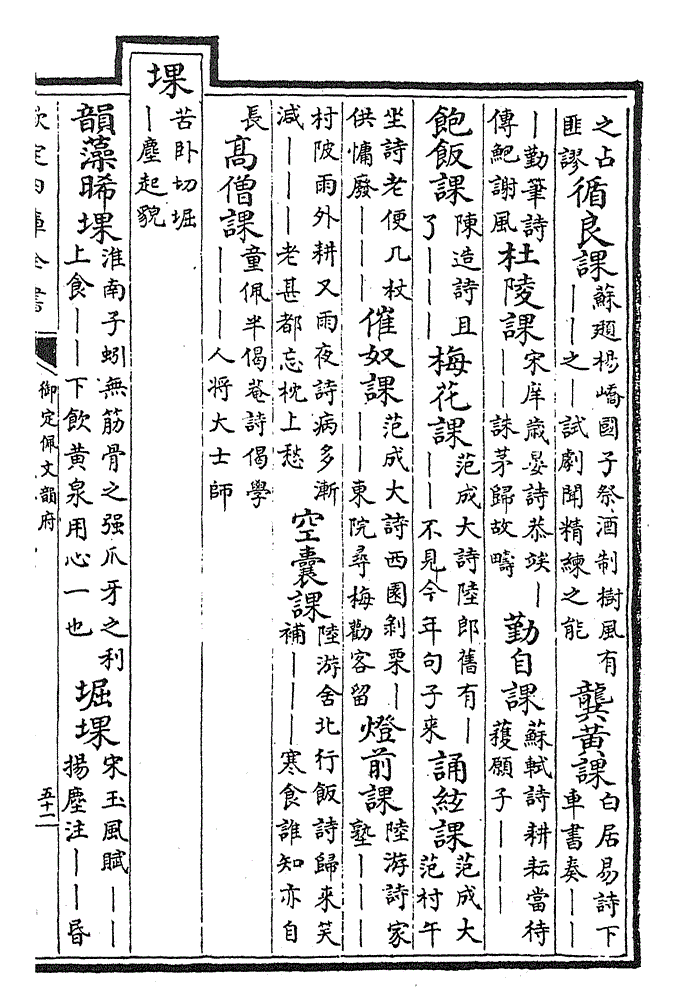 之占匪謬循良課蘇頲楊嶠國子祭酒制樹風有——之—試劇聞精練之能龔黃課白居易詩下車書奏——
—勤筆詩傳鮑謝風杜陵課宋庠歲晏詩恭俟———誅茅歸故疇勤自課蘇軾詩耕耘當待穫願子———
飽飯課陳造詩且了———梅花課范成大詩陸郎舊有———不見今年句子來誦絃課范成大范村午
坐詩老便几杖供慵廢———催奴課范成大詩西園剝栗———東院尋梅勸客留燈前課陸游詩家塾———
村陂雨外耕又雨夜詩病多漸減———老甚都忘枕上愁空囊課陸游舍北行飯詩歸來笑補———寒食誰知亦自
長高僧課童佩半偈菴詩偈學———人將大士師
堁苦卧切堀—塵起貌
韻藻晞堁淮南子蚓無筋骨之强爪牙之利上食——下飲黃泉用心一也堀堁宋玉風賦——揚塵注——昏
欽定四庫全書
御定佩文韻府
五十一